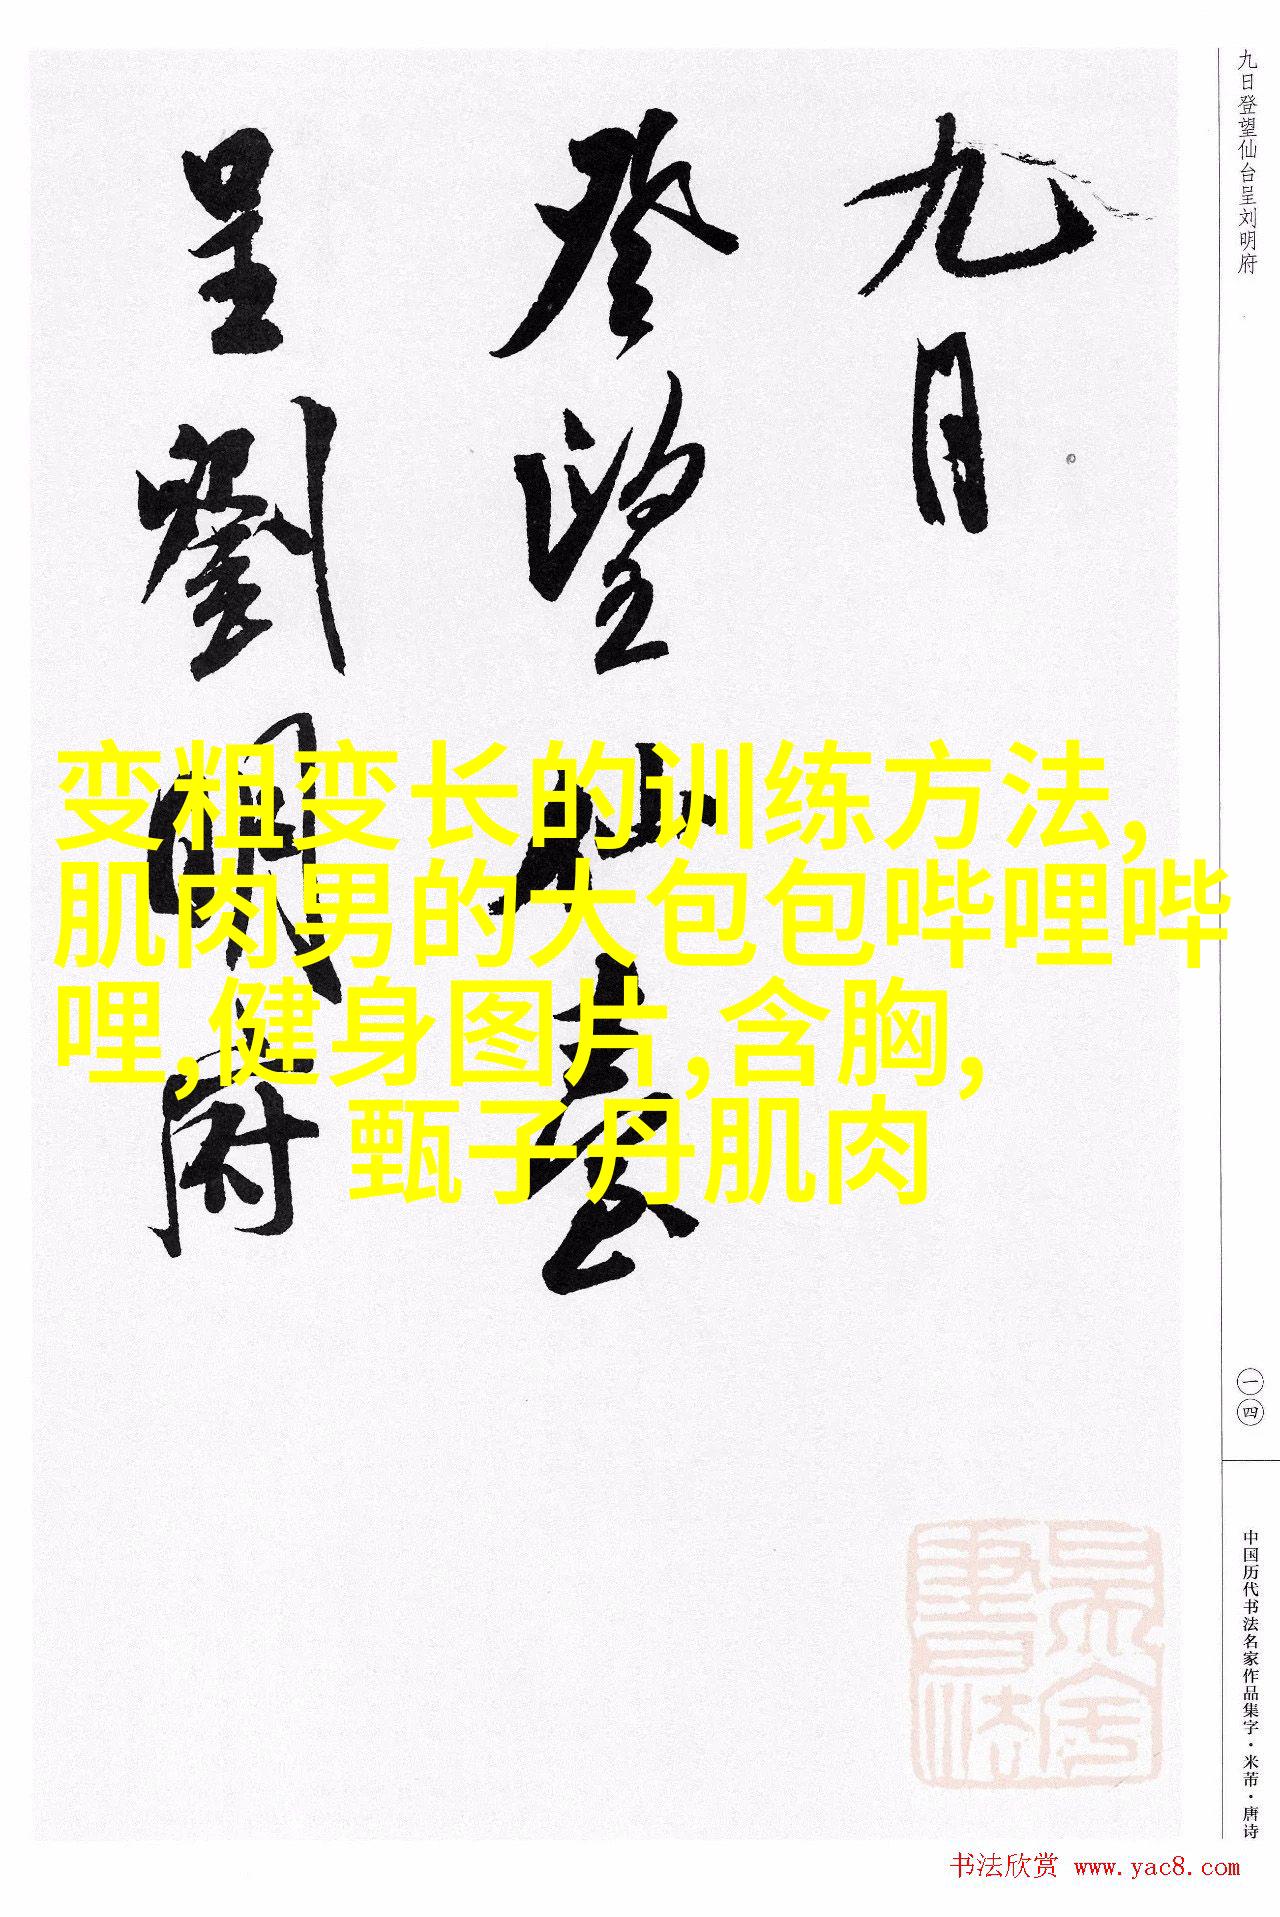 九日登望仙台呈刘明府
九日
登望仙臺
呈劉明府
变粗变长的训练方法,
肌肉男的大包包哔哩哔
哩,健身图片,含胸,
甄子丹肌肉
一四
中国历代书法名家作品集字·米芾·唐诗
书法欣赏 www.yac8.com